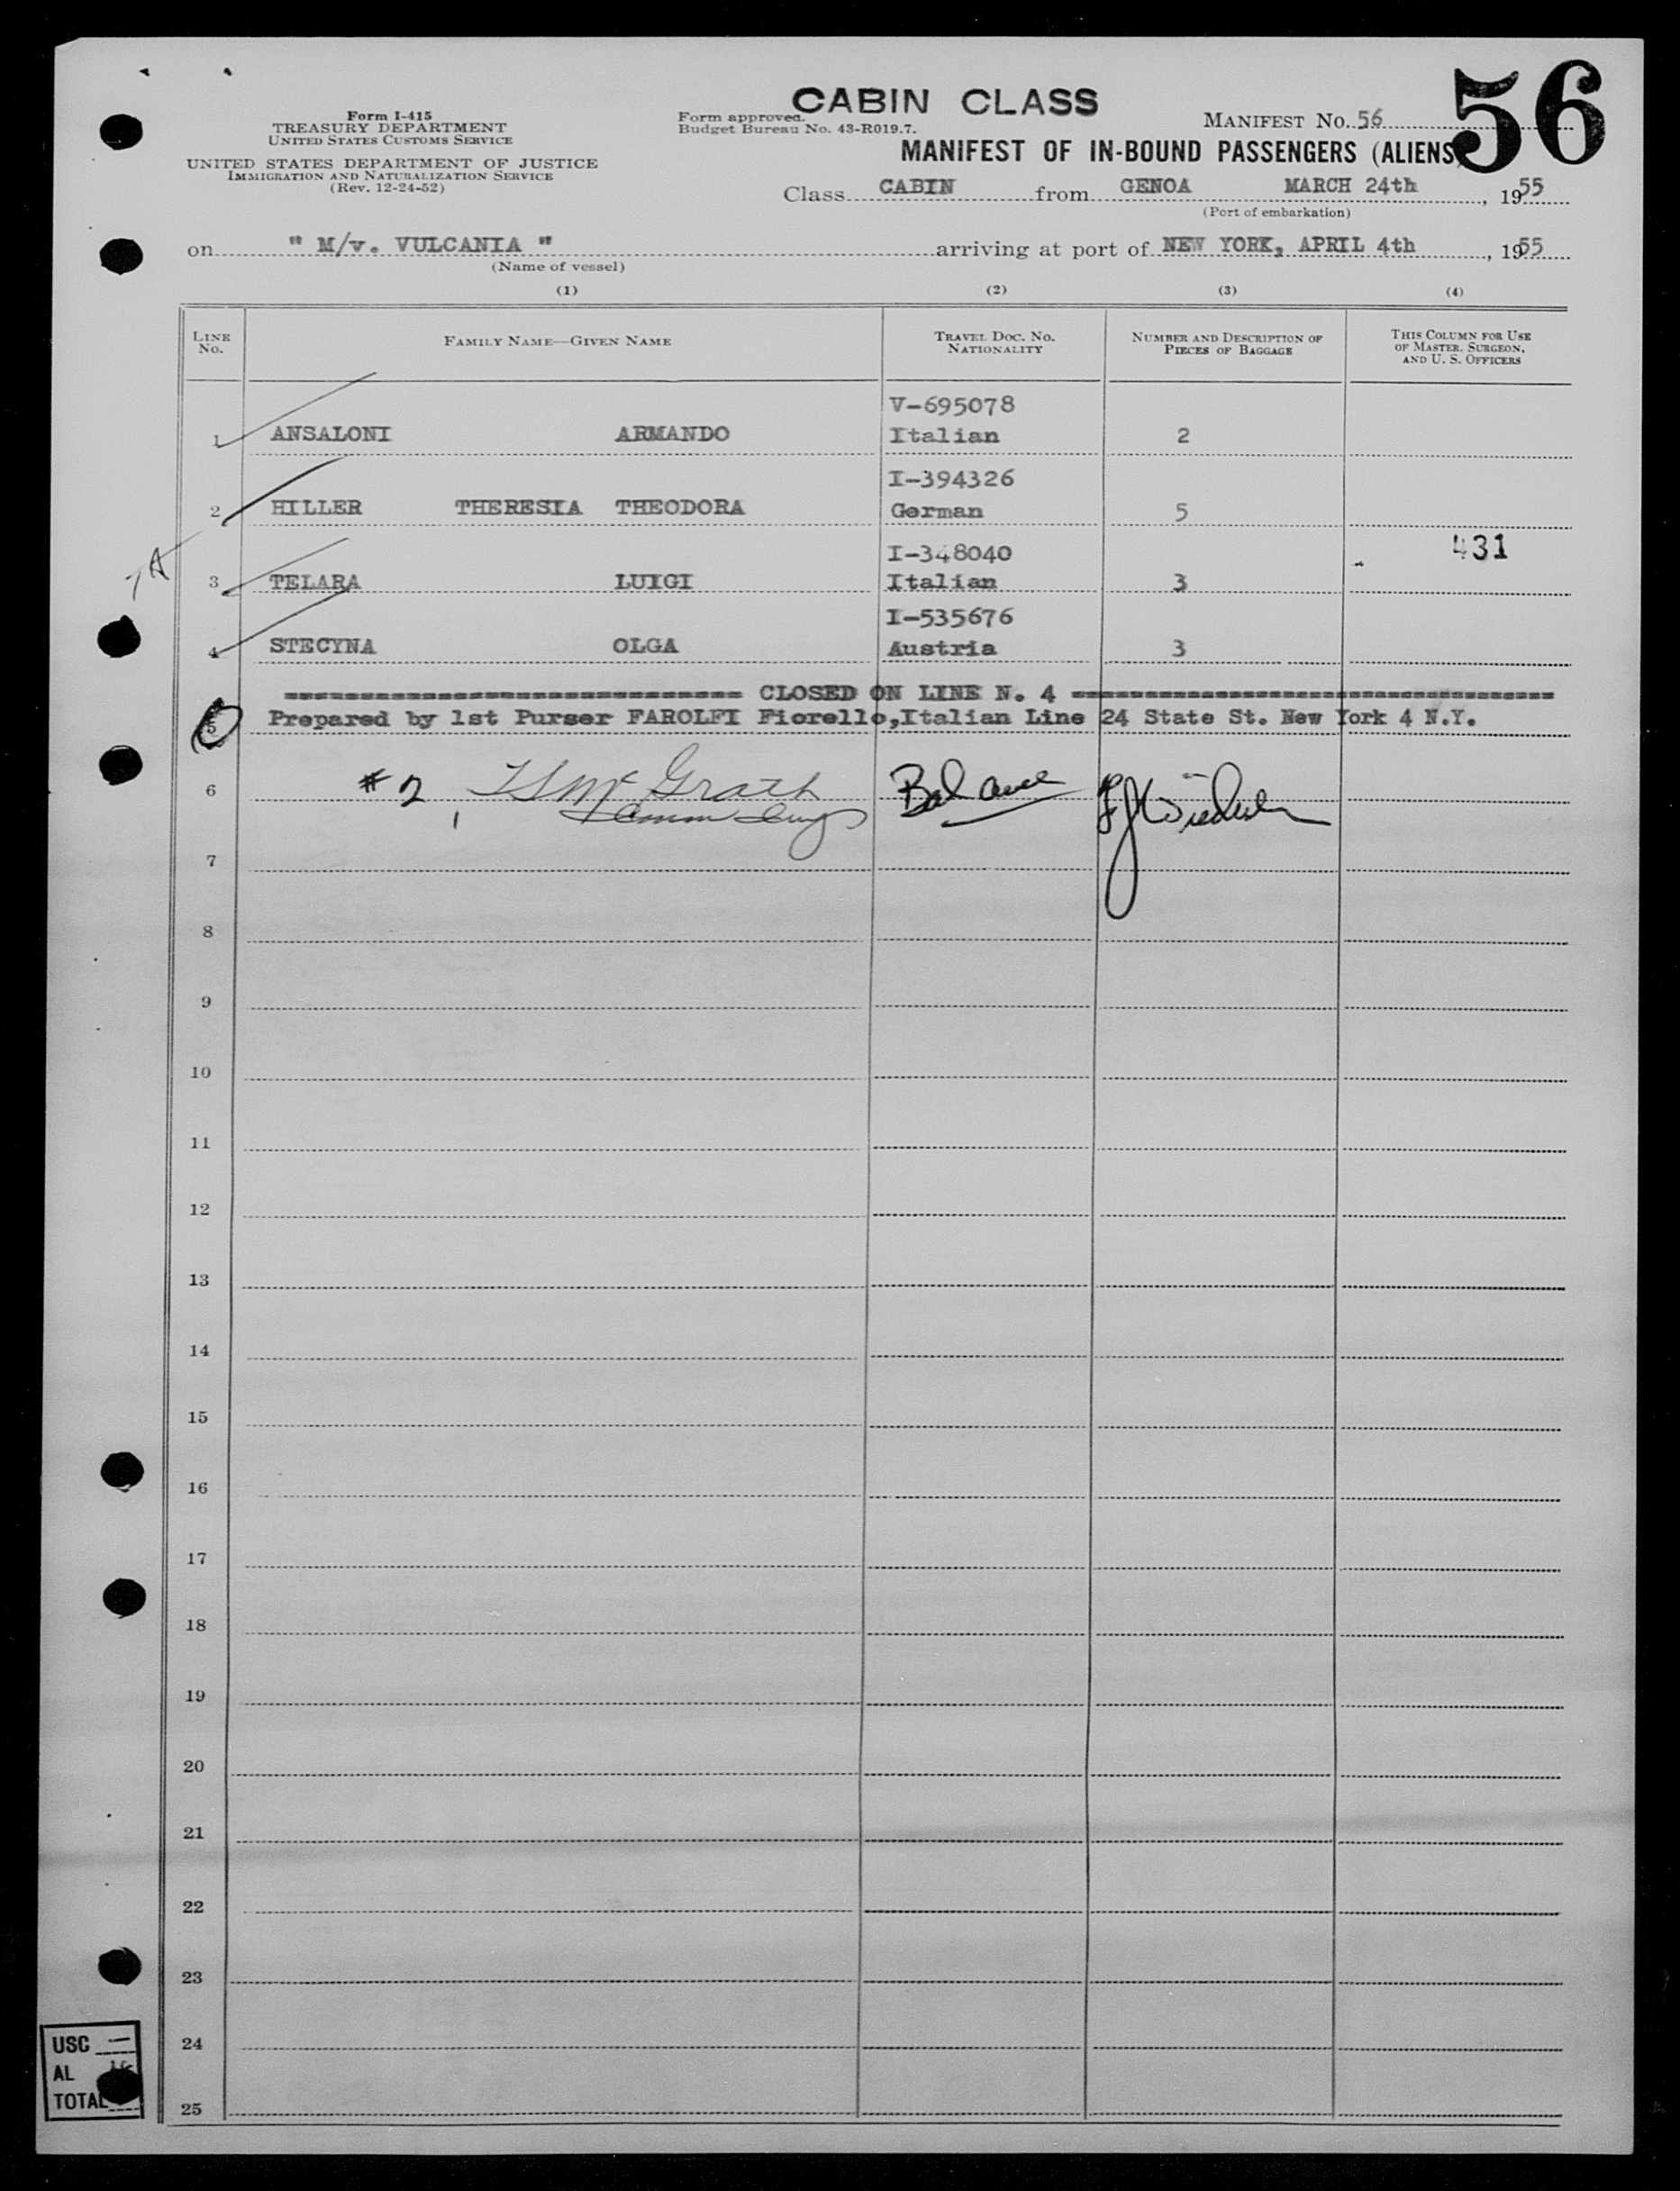 CABIN CLASS
56
Form I-415
TREASURY DEPARTMENT
UNITED STATES CUSTOMS SERVICE
UNITED STATES DEPARTMENT OF JUSTICE
IMMIGRATION AND NATURALIZATION SERVICE
(Rev. 12-24-52)
Form approved.
Budget Bureau No. 43-R019.7.
MANIFEST No. 56
MANIFEST OF IN-BOUND PASSENGERS (ALIENS
Class CABIN from GENOA MARCH 24th, 1955
(Port of embarkation)
on " M/v. VULCANIA " arriving at port of NEW YORK, APRIL 4th, 1955
(Name of vessel)
(1) (2) (3) (4)
LINE No. FAMILY NAME—GIVEN NAME TRAVEL DOC. NO. NATIONALITY NUMBER AND DESCRIPTION OF PIECES OF BAGGAGE THIS COLUMN FOR USE OF MASTER, SURGEON, AND U. S. OFFICERS
V-695078
1 ANSALONI ARMANDO Italian 2
I-394326
2 HILLER THERESIA THEODORA German 5
I-348040 431
3 TELARA LUIGI Italian 3
I-535676
4 STECYNA OLGA Austria 3
============================ CLOSED ON LINE N. 4 =============================
5 Prepared by 1st Purser FAROLFI Fiorello,Italian Line 24 State St. New York 4 N.Y.
6 #2 McGrath Balance
7
8
9
10
11
12
13
14
15
16
17
18
19
20
21
22
23
24
25
USC —
AL
TOTAL